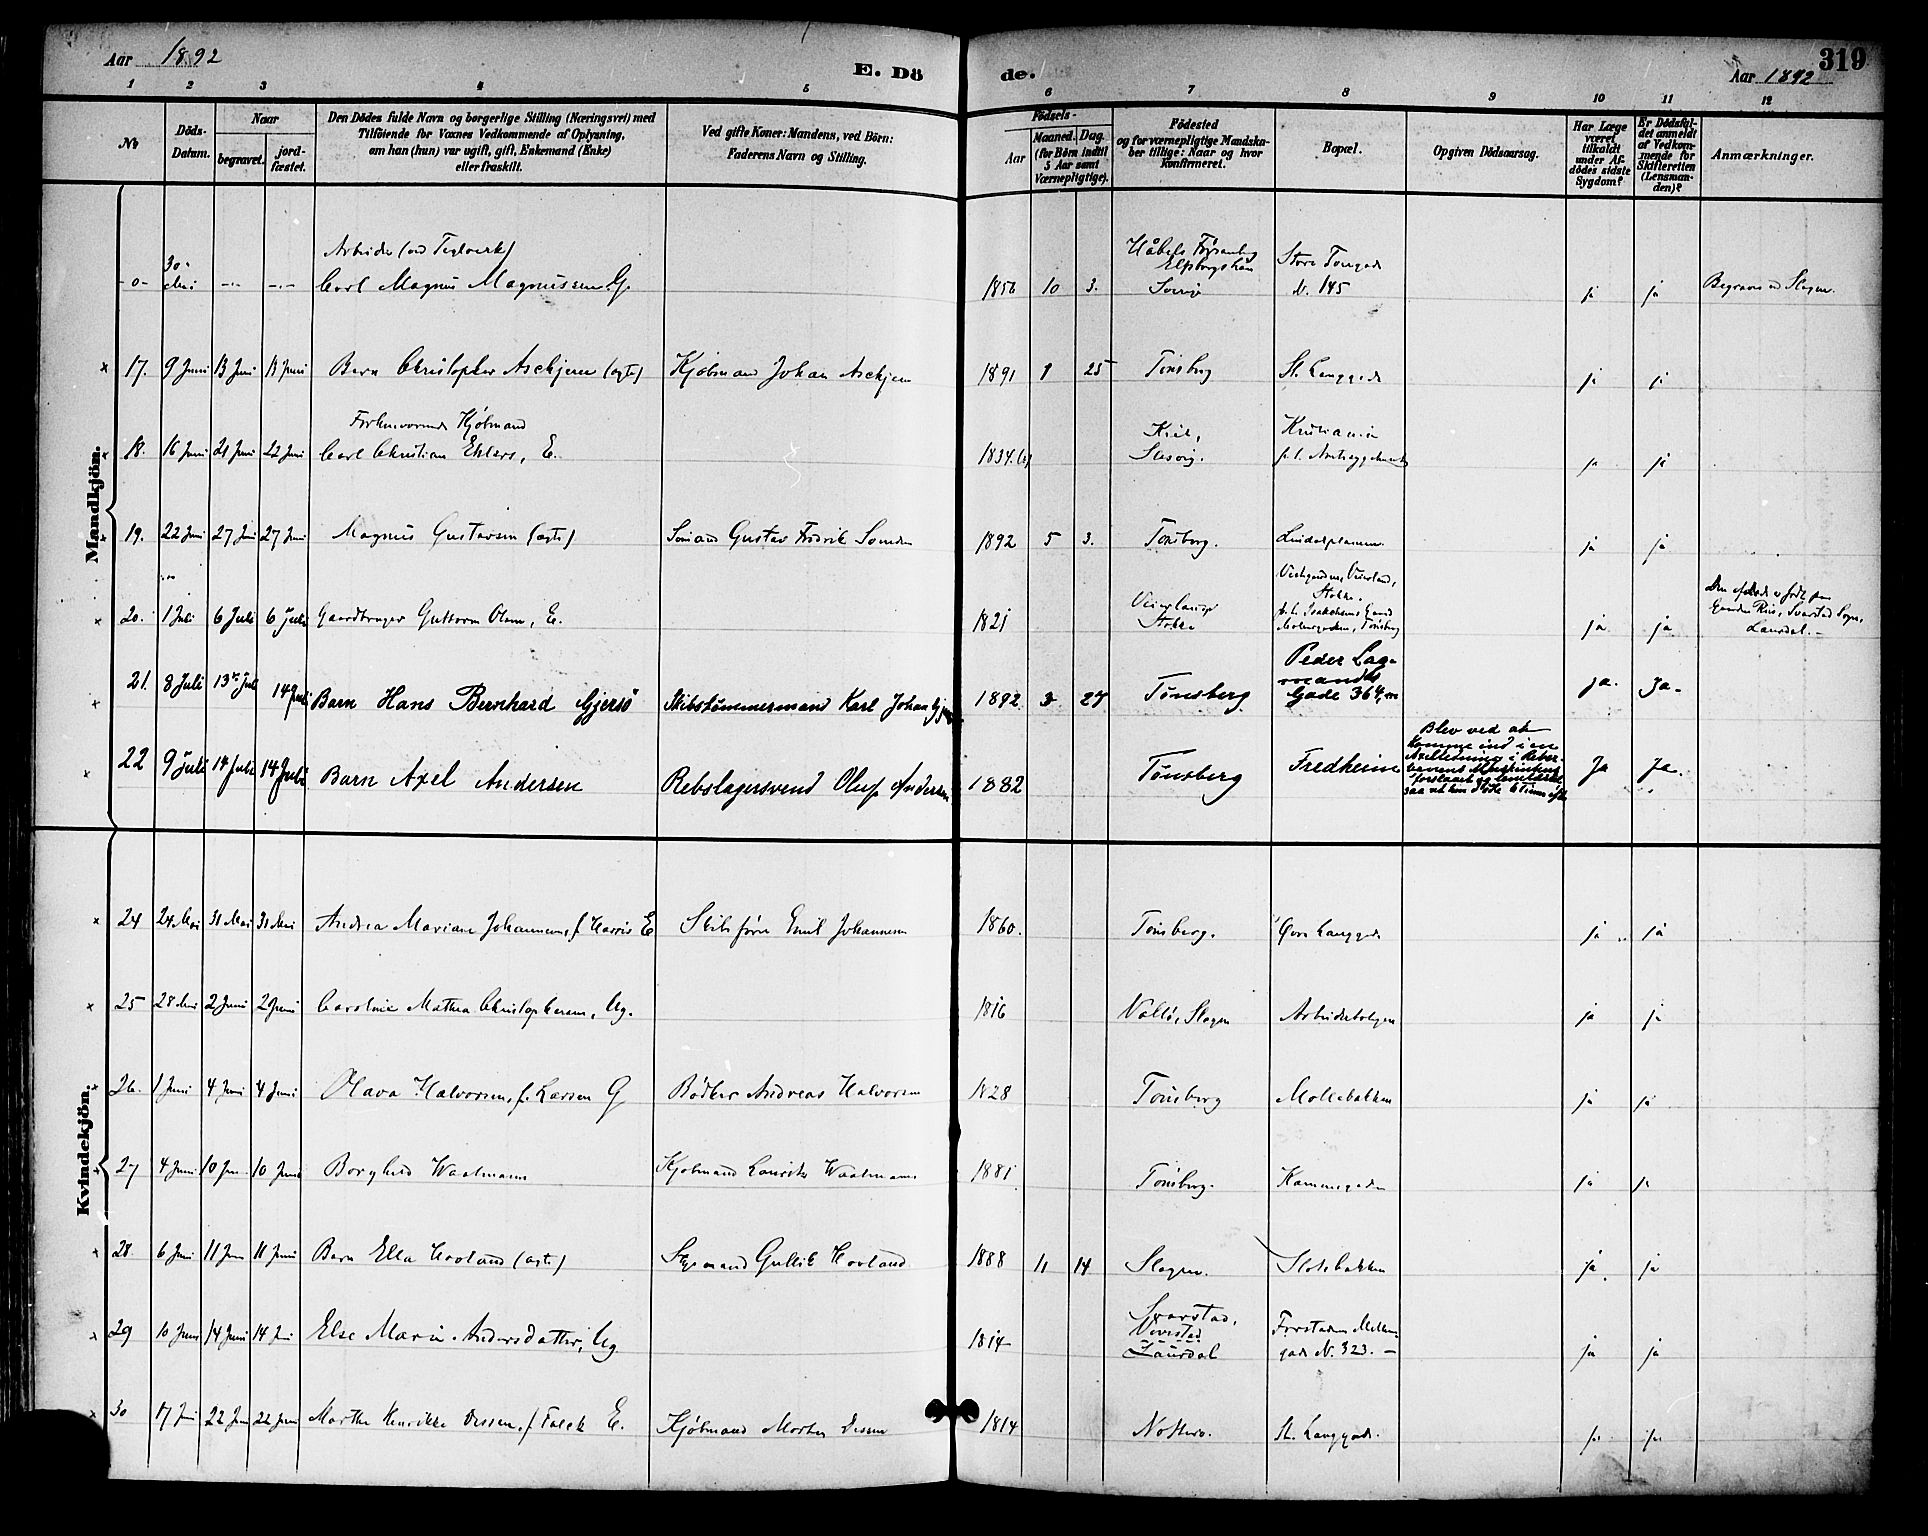 Aar 1892
E. Dö
de.
Aar 1892
319
1 2 3 4 5 6 7 8 9 10 11 12
No
Döds-Datum.
Naar
begravet.
jord-fæstet.
Den Dödes fulde Navn og borgerlige Stilling (Næringsvei) med
Tilföiende for Voxnes Vedkommende af Oplysning,
om han (hun) var ugift, gift, Enkemand (Enke)
eller fraskilt.
Ved gifte Koner: Mandens, ved Börn:
Faderens Navn og Stilling.
Födsels-
Aar
Maaned. Dag.
(for Börn indtil
5 Aar samt
Værnepligtige).
Födested
og for værnepligtige Mandskaber tillige: Naar og hvor
konfirmeret.
Bopæl.
Opgiven Dödsaarsag.
Har Læge
været
tilkaldt
under Afdödes sidste
Sygdom?
Er Dödsfaldet anmeldt
af Vedkommende for
Skifteretten
(Lensmanden)?
Anmærkninger.
Mandkjön.
Arbeider (ved Teglverk)
-0- 30 Mai -"- -"- Carl Magnus Magnussen G. 1850 10 3. Sverige Store Torvgade N. 145 ja ja Begravet ved Slagen.
17. 9 Juni 13 Juni 13 Juni Barn Christopher Aschjem (ægte) Kjøbmand Johan Aschjem 1891 1 25 Tønsberg St. Langgade ja ja
Forhenværende Kjøbmand
18. 16 Juni 21 Juni 22 Juni Carl Christian Ehlers, E. 1834 Kiel, Slesvig. Kristiania ja ja
19. 22 Juni 27 Juni 27 Juni Magnus Gustavsen (ægte) Sømand Gustav Fredrik 1892 5 3. Tønsberg. ja ja
20. 1 Juli 6 Juli 6 Juli Gaardbruger Guttorm Olsen, E. 1821 Veierland Stokke Stokke. Tønsberg ja ja Svarstad Sogn, Laurdal.-
21. 8 Juli 13de Juli 14 Juli Barn Hans Bernhard Gjersö Skibstømmermand Karl Johan 1892 3 27 Tønsberg Peder Lagmands Gade 364 ja. Ja-
22 9 Juli 14 Juli 14 Juli Barn Axel Andersen Rebslagersvend Oluf Andersen 1882 Tønsberg Fredheim Blev ved at komme ind i en Axelledning i saa at han døde 6 Timer efter Ja Ja.
Kvindekjön.
24 24 Mai 31 Mai 31 Mai Andrea Mariane Johannesen, f. Harris E Skibsfører Emil Johannesen 1860. Tønsberg. Øvre Langgade ja ja
25 28 Mai 2 Juni 2 Juni Caroline Mathea Christophersen, Ug. 1816 Valløe, Slagen Arbeiderboligen ja ja
26. 1 Juni 4 Juni 4 Juni Olava Halvorsen, f. Larsen G Bødker Andreas Halvorsen 1828 Tønsberg Møllebakken ja ja
27 4 Juni 10 Juni 10 Juni Borghild Waalmann Kjøbmand Lauritz Waalmann 1881 Tønsberg. Kammegaden ja ja
28. 6 Juni 11 Juni 11 Juni Barn Ella Hovland (ægte) Gullik Hovland 1888 11 14 Slagen. Slotsbakken ja ja
29 10 Juni 14 Juni 14 Juni Else Marie Andersdatter, Ug. 1814 Svarstad, Laurdal gade N. 323.- ja ja
30 17 Juni 22 Juni 22 Juni Marthe Henrikke Dessen, f. Falck E. Kjøbmand Morten Dessen 1814 Nøtterø. St. Langgade. ja ja